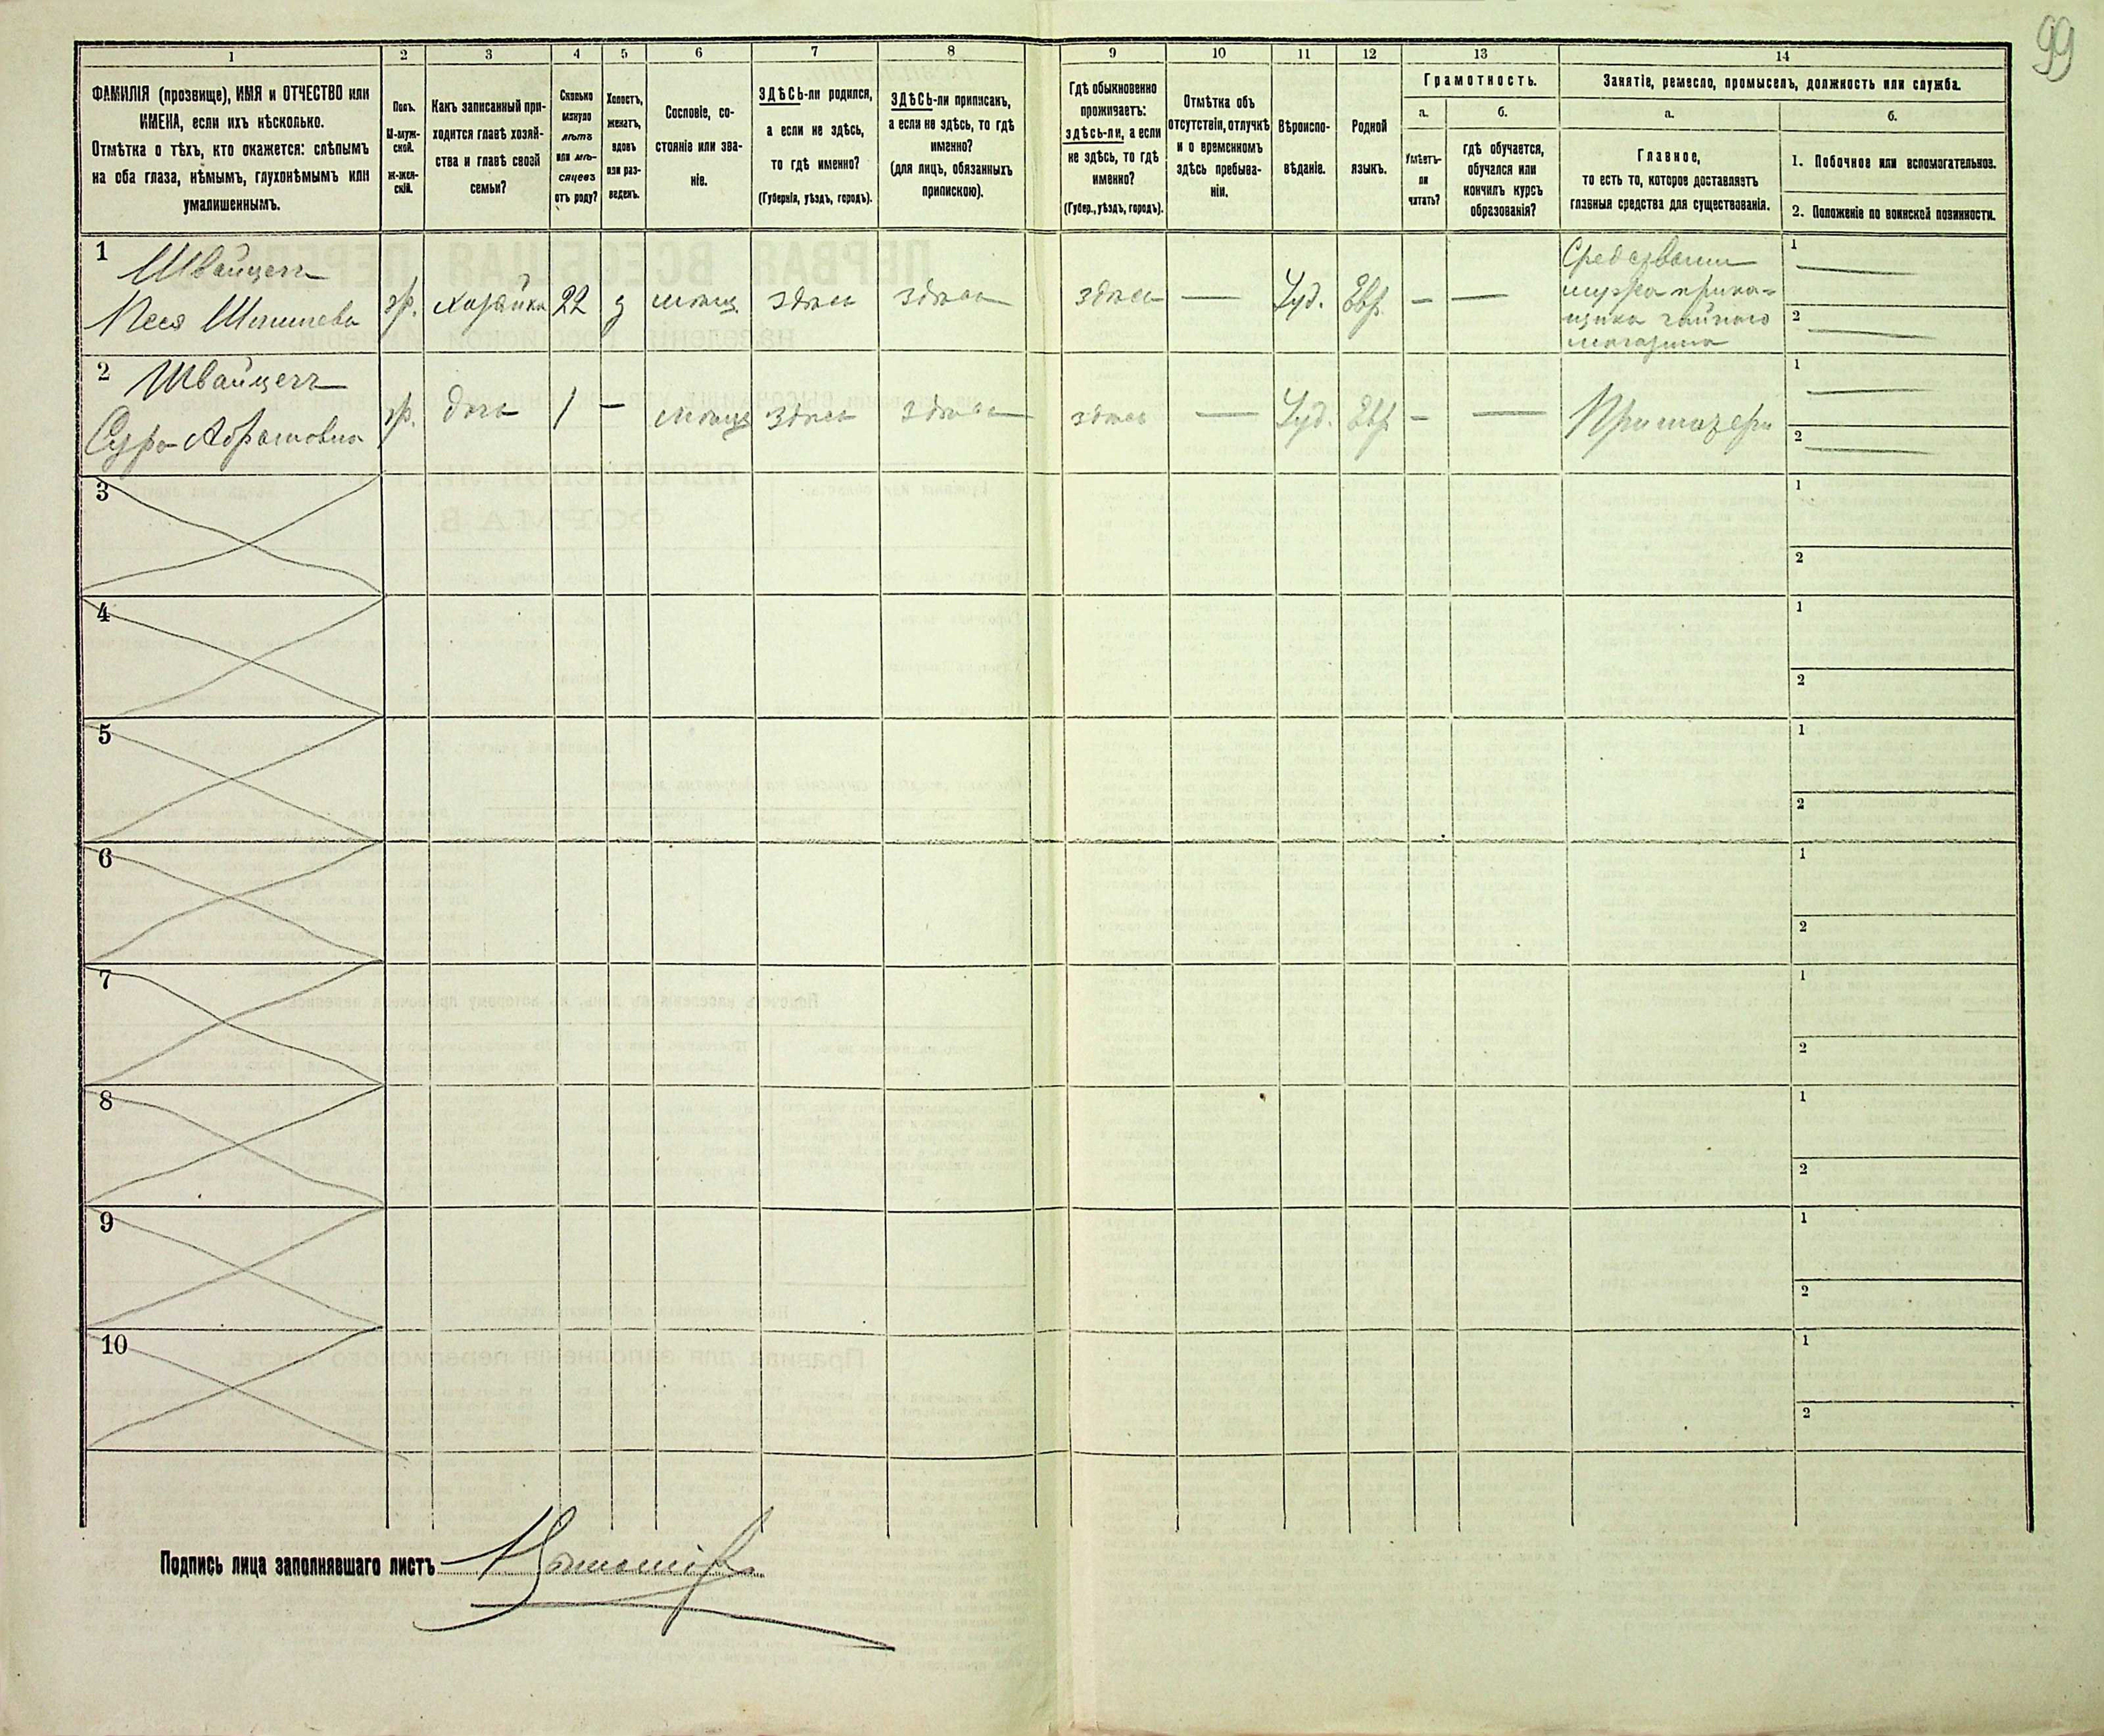 99
1 2 3 4 5 6 7 8 9 10 11 12 13 14
ФАМИЛІЯ (прозвище), ИМЯ и ОТЧЕСТВО или
ИМЕНА, если ихъ нѣсколько.
Отмѣтка о тѣхъ, кто окажется: слѣпымъ
на оба глаза, нѣмымъ, глухонѣмымъ или
умалишеннымъ.
Полъ.
М-муж-
ской.
Ж-жен-
скій.
Какъ записанный при-
ходится главѣ хозяй-
ства и главѣ своей
семьи?
Сколько
минуло
лѣтъ
или мѣ-
сяцевъ
отъ роду?
Холостъ,
женатъ,
вдовъ
или раз-
веденъ.
Сословіе, со-
стояніе или зва-
ніе.
ЗДѢСЬ-ли родился,
а если не здѣсь,
то гдѣ именно?
(Губернія, уѣздъ, городъ).
ЗДѢСЬ-ли приписанъ,
а если не здѣсь, то гдѣ
именно?
(для лицъ, обязанныхъ
припискою).
Гдѣ обыкновенно
проживаетъ:
здѣсь-ли, а если
не здѣсь, то гдѣ
именно?
(Губер., уѣздъ, городъ).
Отмѣтка объ
отсутствіи, отлучкѣ
и о временномъ
здѣсь пребыва-
ніи.
Вѣроиспо-
вѣданіе.
Родной
языкъ.
Грамотность.
а.
Умѣетъ-
ли
читать?
б.
гдѣ обучается,
обучался или
кончилъ курсъ
образованія?
Занятіе, ремесло, промыселъ, должность или служба.
а.
Главное,
то есть то, которое доставляетъ
главныя средства для существованія.
б.
1. Побочное или вспомогательное.
2. Положеніе по воинской повинности.
1 Швайцеръ
Песя
ж. хозяйка 22 з мѣщ. здѣсь здѣсь здѣсь — Іуд. Евр. — —
мужа прика-
щика чайного
магазина
1 —
2 —
2 Швайцеръ
Сура Абрамовна
ж. дочь 1 — мѣщ здѣсь здѣсь здѣсь — Іуд. Евр — — При матери
1 —
2 —
3 1
2
4 1
2
5 1
2
6 1
2
7 1
2
8 1
2
9 1
2
10 1
2
Подпись лица заполнявшаго листъ